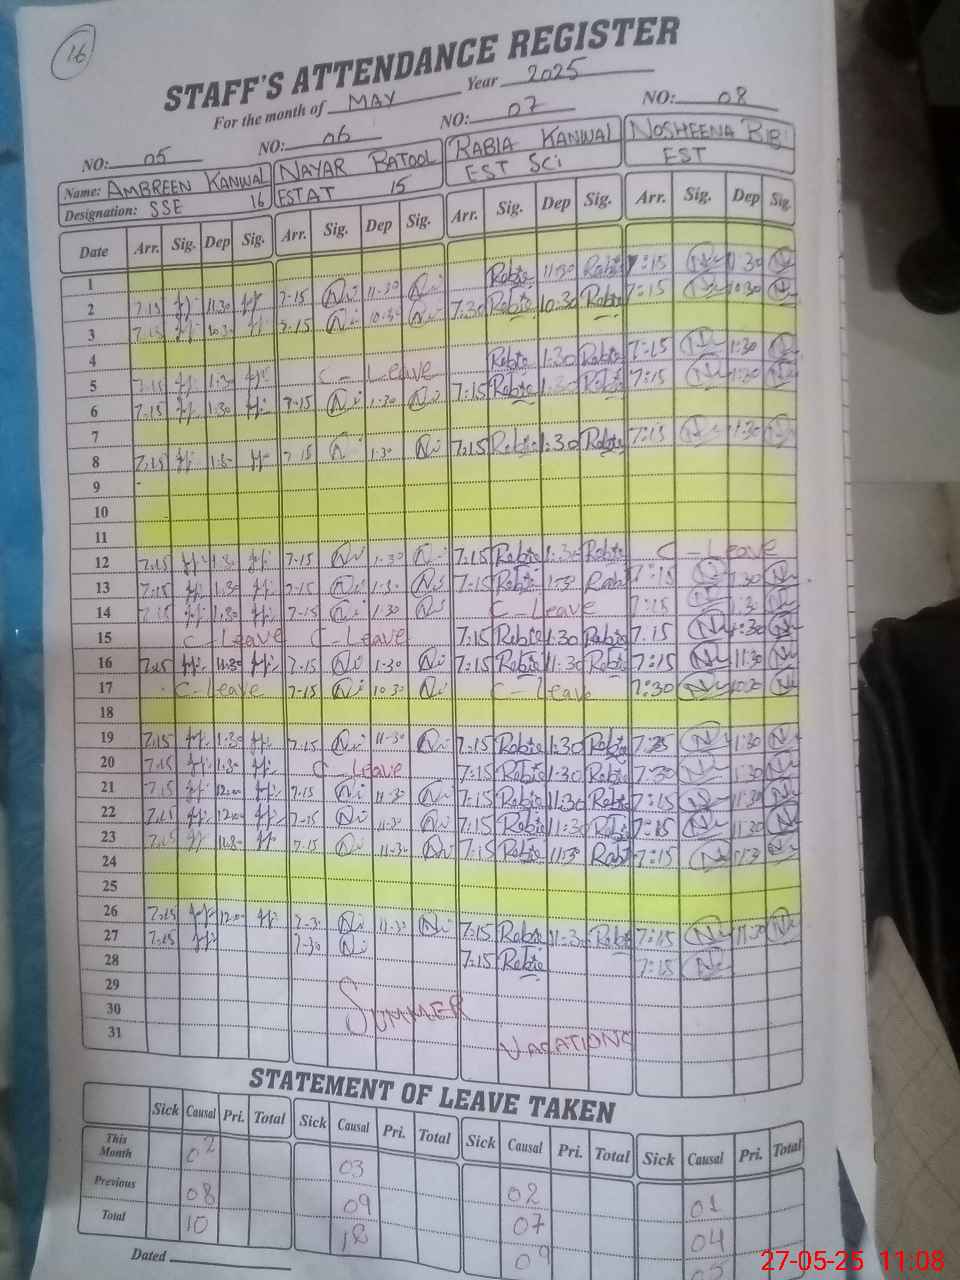 16
STAFF'S ATTENDANCE REGISTER
For the month of MAY Year 2025
NO: 05 NO: 06 NO: 07 NO: 08
Name: AMBREEN KANWAL NAYAR BATOOL RABIA KANWAL NOSHEENA BIBI
Designation: SSE 16 ESTAT 15 EST Sci EST
Date Arr. Sig. Dep Sig. Arr. Sig. Dep Sig. Arr. Sig. Dep Sig. Arr. Sig. Dep Sig.
1
2 7.15 11.30 7-15 11-30 Rabie 11:30 Rabie 7:15 11:30
3 7.15 10.30 7-15 10-30 7:30 Rabie 10:30 Rabie 7:15 10:30
4
5 7.15 1.30 C-Leave Rabie 1:30 Rabie 7:15 1:30
6 7.15 1.30 7-15 1-30 7:15 Rabie 1:30 Rabie 7:15 1:30
7
8 7.15 1.30 7-15 1-30 7:15 Rabie 1:30 Rabie 7:15 1:30
9
10
11
12 7.15 1.30 7-15 1-30 7:15 Rabie 1:30 Rabie C-Leave
13 7.15 1.30 7-15 1-30 7:15 Rabie 1:30 Rabi 7:15 1:30
14 7.15 1.30 7-15 1-30 C-Leave 7:15 1:30
15 C-Leave C-Leave 7:15 Rabie 1:30 Rabie 7:15 1:30
16 7.15 11.30 7-15 1-30 7:15 Rabie 11:30 Rabie 7:15 11:30
17 C-Leave 7-15 10-30 C-Leave 7:30
18
19 7.15 1.30 7-15 11-30 7:15 Rabie 1:30 Rabie 1:30
20 7.15 1.30 C-Leave 7:15 Rabie 1:30 Rabie 7:30 1:30
21 7.15 12.00 7-15 11-30 7:15 Rabie 11:30 Rabie 7:15 11:30
22 7.15 12.00 7-15 11-30 7:15 Rabie 11:30 Rabie 7:15 11:30
23 7.15 11.30 7-15 11-30 7:15 Rabie 11:30 Rabi 7:15 11:30
24
25
26 7.15 12.00 7-30 11-30 7:15 Rabie 11:30 Rabie 7:15 11:30
27 7.15 7-30 7:15 Rabie 7:15
28
29
30 SUMMER
31 VACATIONS
STATEMENT OF LEAVE TAKEN
Sick Causal Pri. Total Sick Causal Pri. Total Sick Causal Pri. Total Sick Causal Pri. Total
This Month 02 03 02 01
Previous 08 09 07 04
Total 10 12 09 05
Dated
27-05-25 11:08